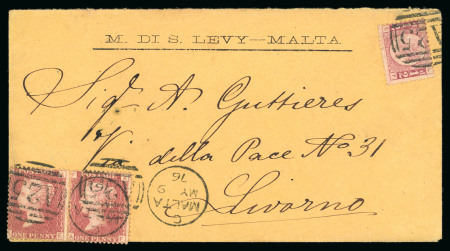 M. DI S. LEVY—MALTA
Sigr A. Guttieres
V. della Pace No 31
Livorno
MALTA
MY 9
76
ONE PENNY
ONE PENNY